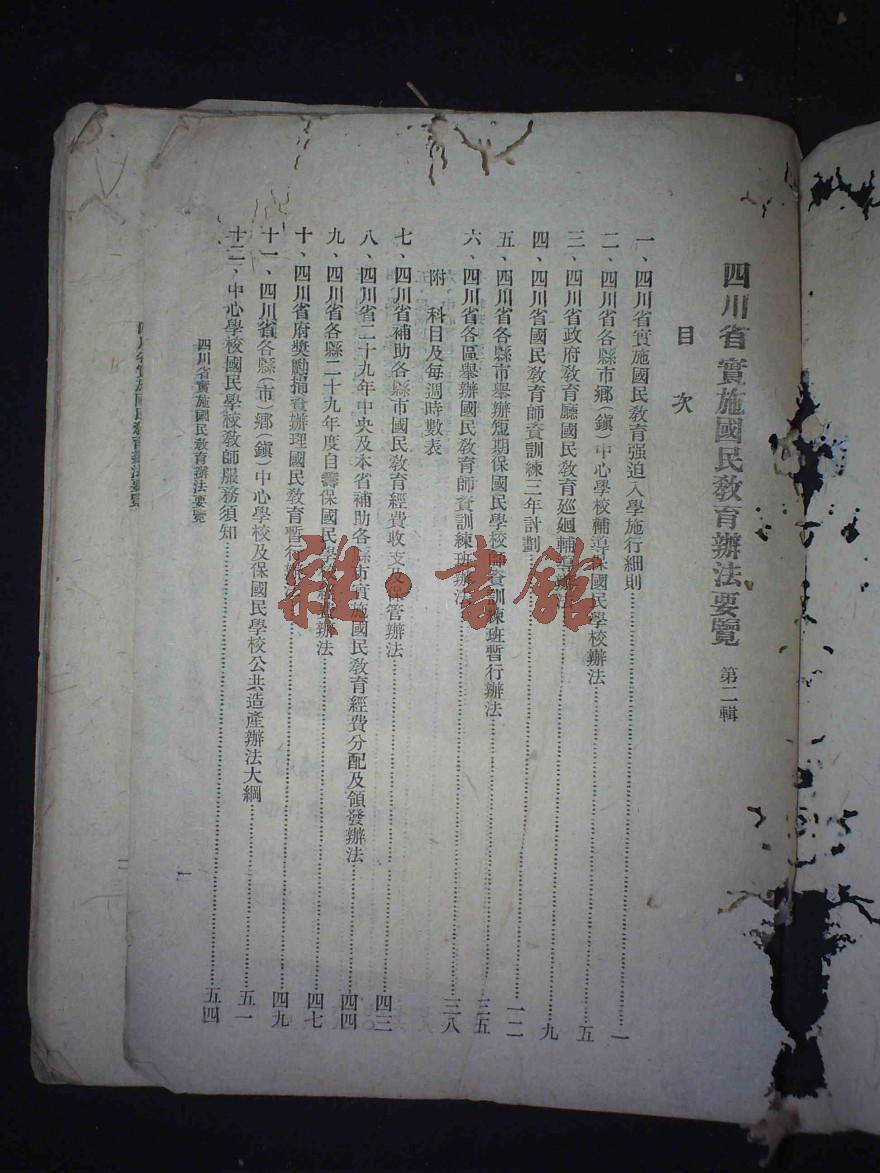 四川省實施國民教育辦法要覽 第二輯
目次
一、四川省實施國民教育强迫入學施行細則……一
二、四川省各縣市鄉(鎭)中心學校輔導保國民學校辦法……五
三、四川省政府教育廳國民教育廵廻輔導辦法……九
四、四川省國民教育師資訓練三年計劃……一二
五、四川省各縣市舉辦短期保國民學校師資訓練班暫行辦法……三五
六、四川省各區舉辦國民教育師資訓練班辦法……三八
附 科目及每週時數表
七、四川省補助各縣市國民教育經費收支及保管辦法……四三
八、四川省二十九年中央及本省補助各縣市實施國民教育經費分配及領發辦法……四四
九、四川省各縣二十九年度自籌保國民學校 辦法……四七
十、四川省府獎勵捐資辦理國民教育暫行辦法……四九
十一、四川省各縣(市)鄉(鎭)中心學校及保國民學校公共造產辦法大綱……五一
十二、中心學校國民學校教師服務須知……五四
四川省實施國民教育辦法要覽
一
四川省實施國民教育辦法要覽
二
雜·書館